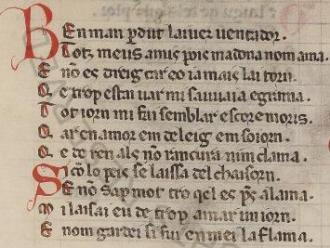 BEn man pdut lai uez uentador.
Totz meus amis pois madona nom ama.
E no es dreig car eo iamais lai torn.
Q e trop estai uar mi saluaia e grama.
T ot iorn mi fui semblar escore moris.
Q ar en amor em deleig em soiorn.
Q e de ren als no rancura nim clama.
SIco lo peis se laissa del chaisorn.
E no sap mot tro qel es ps a lama.
M i laisai eu de trop amar un iorn.
E nom gardei si fui en mei la flama.